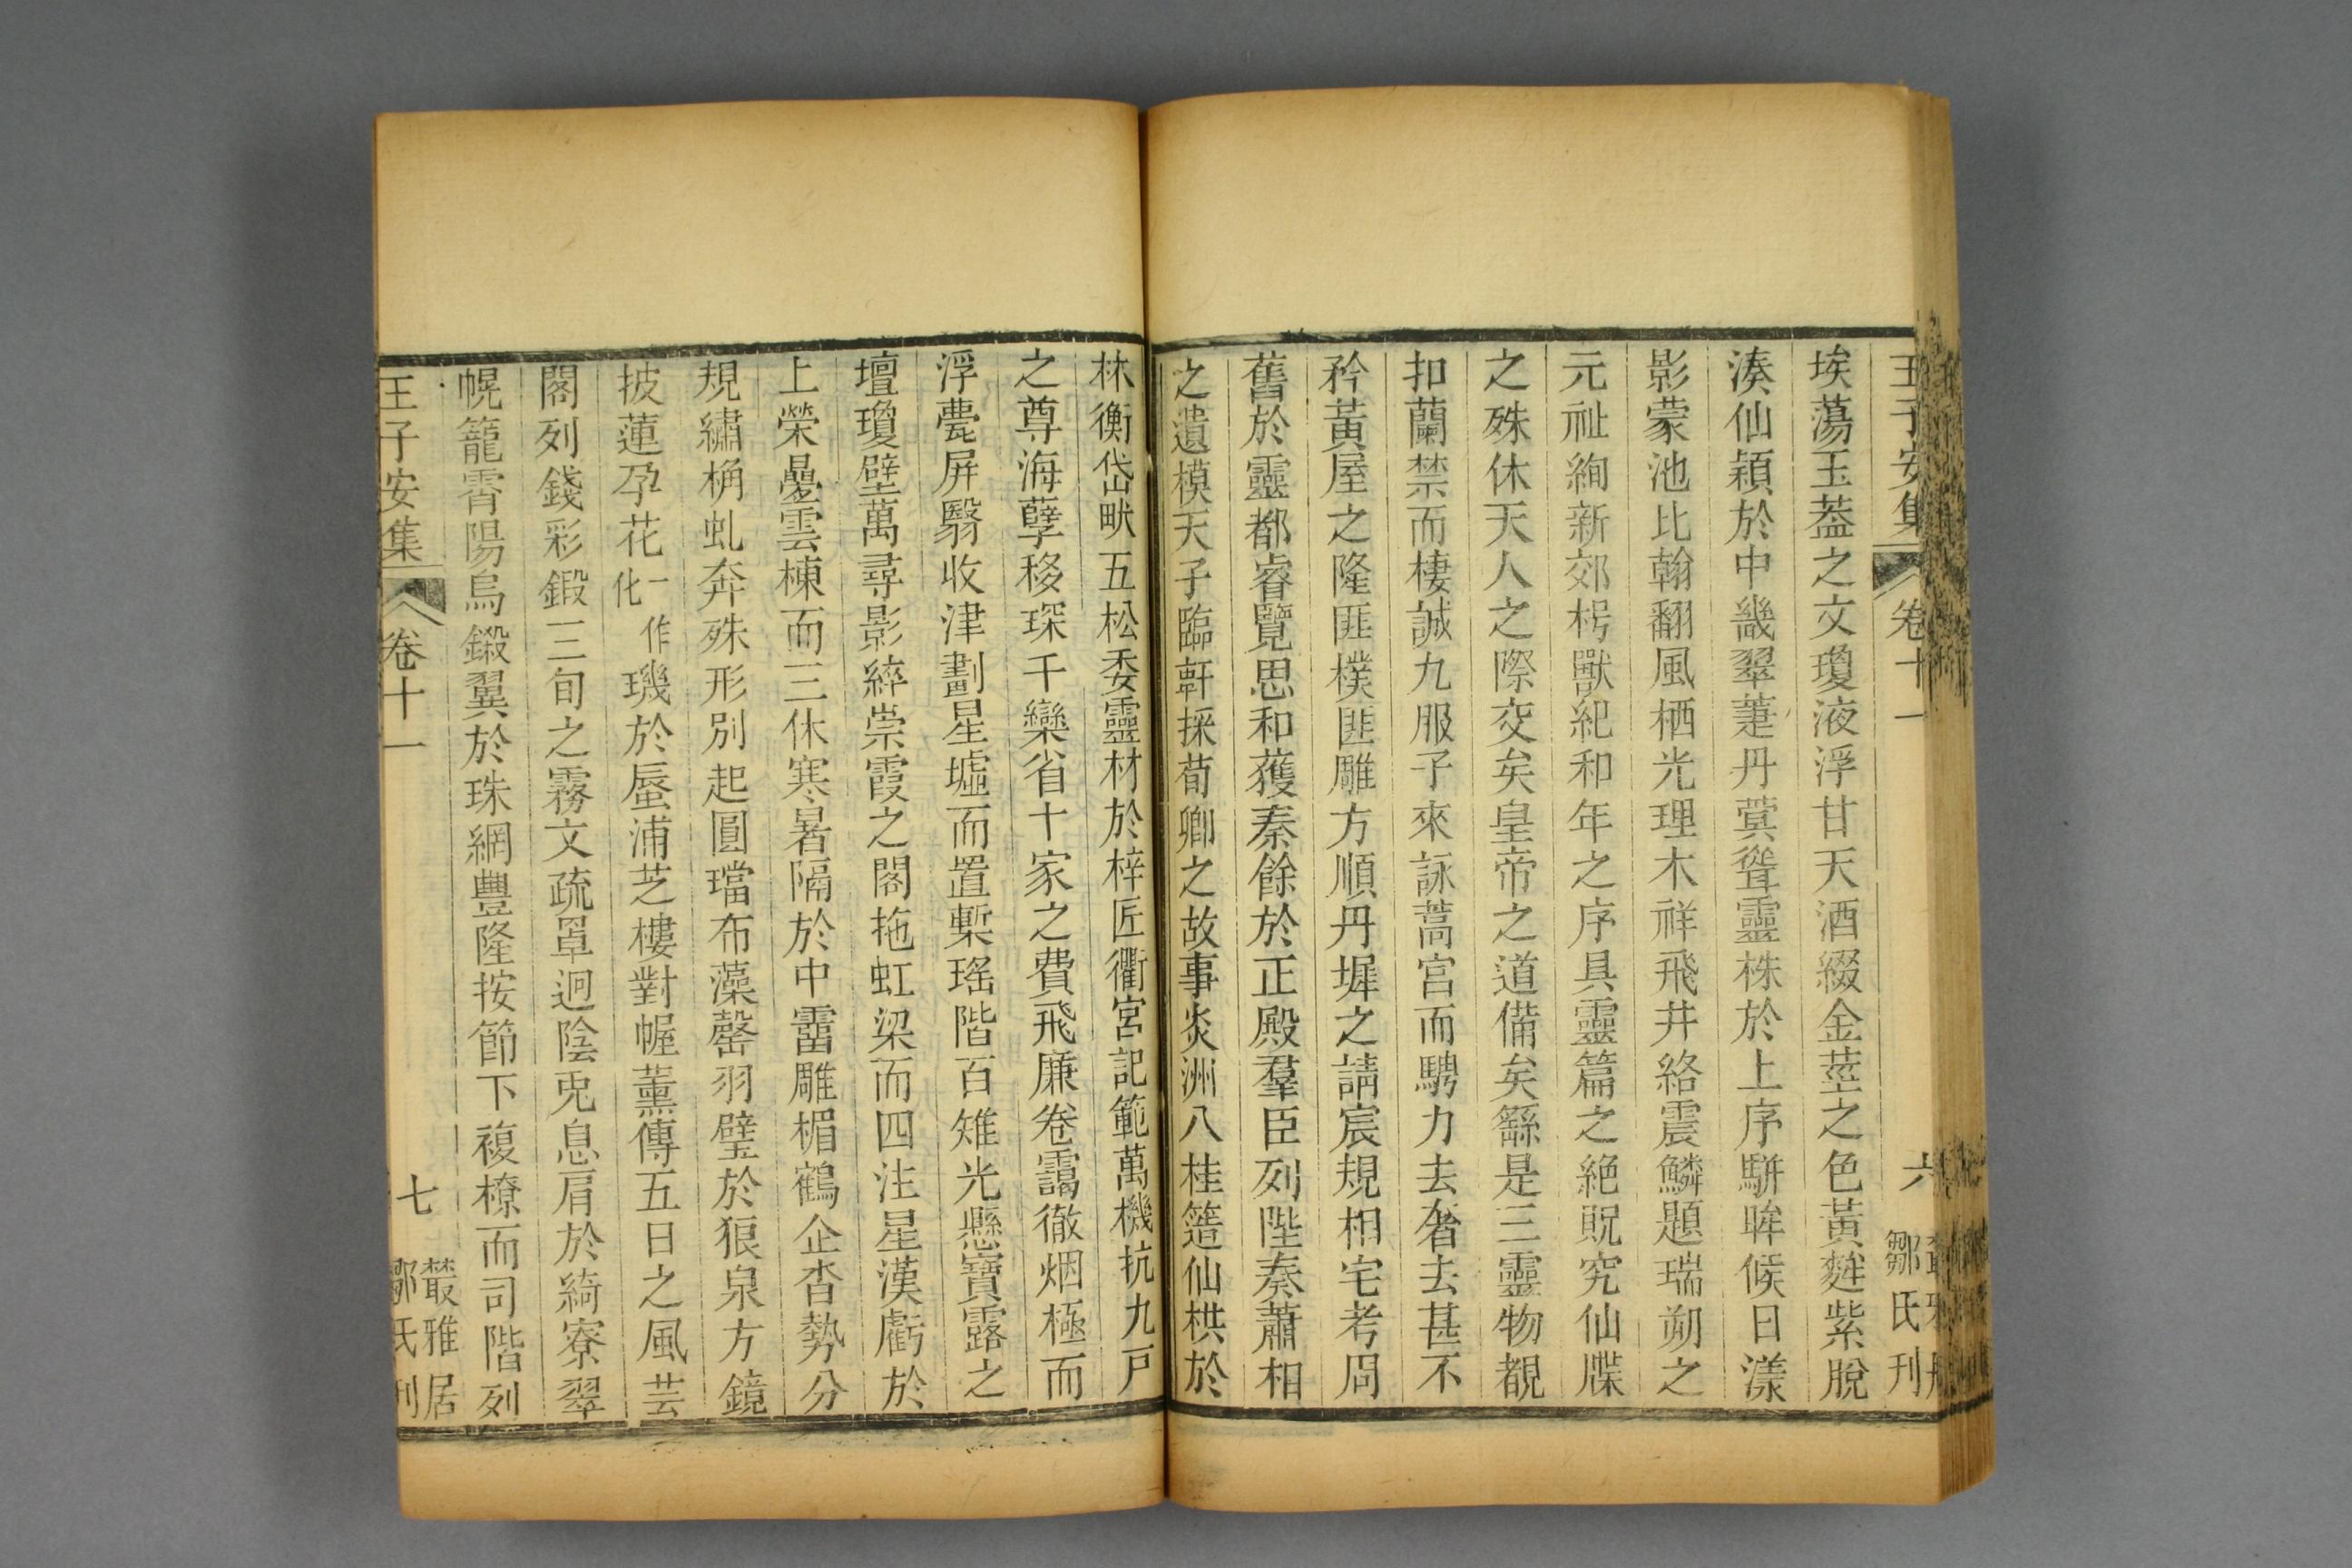 王子安集 卷十一 六 鄒氏刊
埃蕩玉葢之文瓊液浮甘天酒綴金莖之色黃麰紫脫
湊仙穎於中畿翠萐丹蓂聳靈株於上序駢眸候日漾
影蒙池比翰翻風栖光理木祥飛井絡震鱗題瑞朔之
元祉絢新郊枵獸紀和年之序具靈篇之絕貺究仙牒
之殊休天人之際交矣皇帝之道備矣繇是三靈物覩
扣蘭禁而棲誠九服子來詠蒿宮而騁力去奢去甚不
矜黃屋之隆匪樸匪雕方順丹墀之請宸規相宅考周
舊於靈都睿覽思和蒦秦餘於正殿羣臣列陛奏蕭相
之遺模天子臨軒採荀卿之故事炎洲八桂簉仙栱於
林衡岱畎五松委靈材於梓匠衢宮記範萬機抗九戸
之尊海孽移琛千欒省十家之費飛廉卷靄徹烟極而
浮甍屏翳收津劃星墟而置槧瑤階百雉光懸寶露之
壇瓊壁萬尋影綷崇霞之閣拖虹梁而四注星漢虧於
上榮曡雲棟而三休寒暑隔於中霤雕楣鶴企杳勢分
規繡桷虬奔殊形別起圓璫布藻罄羽璧於狼泉方鏡
披蓮孕花一作化璣於蜃浦芝樓對幄薰傳五日之風芸
閣列錢彩鍛三旬之霧文疏罩迥陰兎息肩於綺寮翠
幌籠霄陽烏鎩翼於珠網豐隆按節下複橑而司階列
王子安集 卷十一 七 叢雅居鄒氏刊